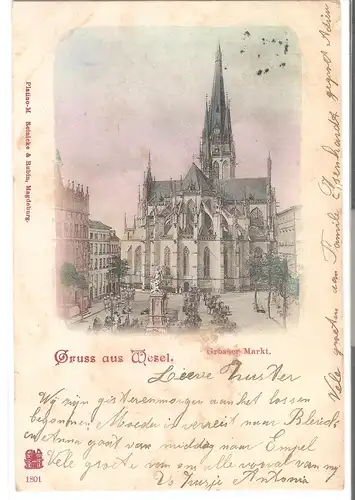 Platino-M Reinicke & Rubin, Magdeburg.
Gruss aus Wesel.
Grosser Markt.
Lieve Zuster
Wij zijn gisterenmorgen aan het lossen
begonnen Moeder is verreit naar Blerick
en Anna gaat van middag naar Empel
Vele groete van ons alle vooral van mij
Uw Zusje Antonia
Vele groeten aan Familie gegroet Adieu
1801